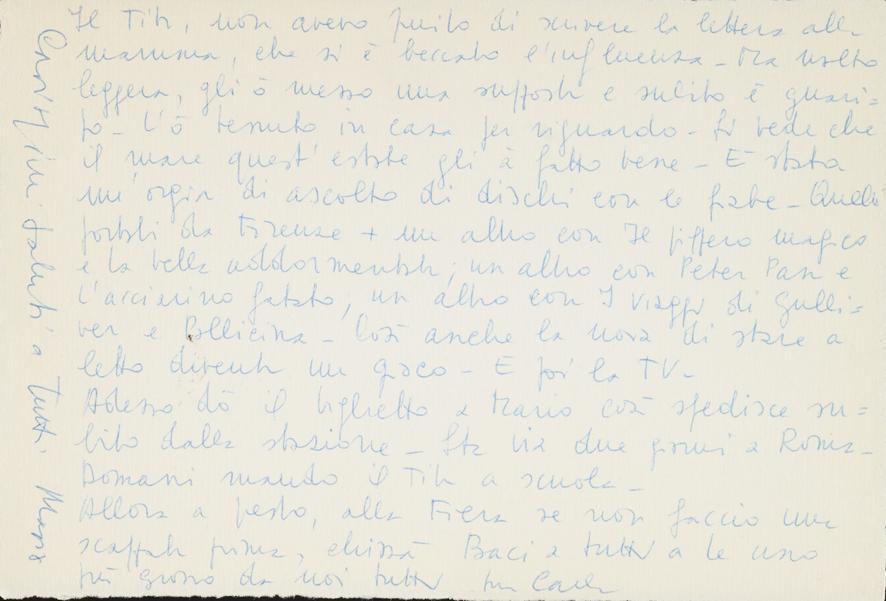 Il Titi, non avevo finito di scrivere la lettera alla
mamma, che si è beccato l'influenza - Ma molto
leggera, gli ò messo una supposta e subito è guari=
to - L'ò tenuto in casa per riguardo - Si vede che
il mare quest'estate gli à fatto bene - E' stata
un'orgia di ascolto di dischi con le fiabe - Quelli
portati da Firenze + un altro con Il piffero magico
e la bella addormentata; un altro con Peter Pan e
l'acciarino fatato; un altro con I viaggi di Gulli=
ver e Pollicina - Così anche la noia di stare a
letto diventa un gioco - E poi la TV -
Adesso dò il biglietto a Mario così spedisce su=
bito dalla stazione - Sta via due giorni a Roma -
Domani mando il Titi a scuola -
Allora a presto, alla Fiera se non faccio una
scappata prima, chissà Baci a tutti a te uno
più grosso da noi tutti tua Carla
Carissimi saluti a tutti. Mario